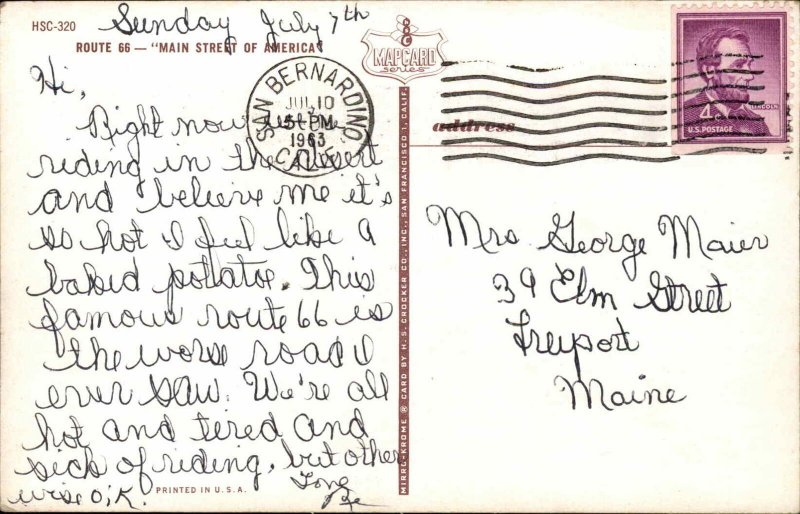 HSC-320
Sunday July 7th
ROUTE 66 — "MAIN STREET OF AMERICA"
MAPCARD
series
Hi,
Right now
riding in the desert
and believe me it's
so hot I feel like a
baked potatoe. This
famous route 66 is
the worse road I
ever saw. We're all
hot and tered and
sick of riding, but other
wise O.K.
Love
PRINTED IN U.S.A.
MIRRO-KROME ® CARD BY H. S. CROCKER CO., INC., SAN FRANCISCO 1, CALIF.
SAN BERNARDINO
JUL 10
5 PM
1963
CALIF
address
4¢
LINCOLN
U.S. POSTAGE
Mrs George Maier
39 Elm Street
Freeport
Maine